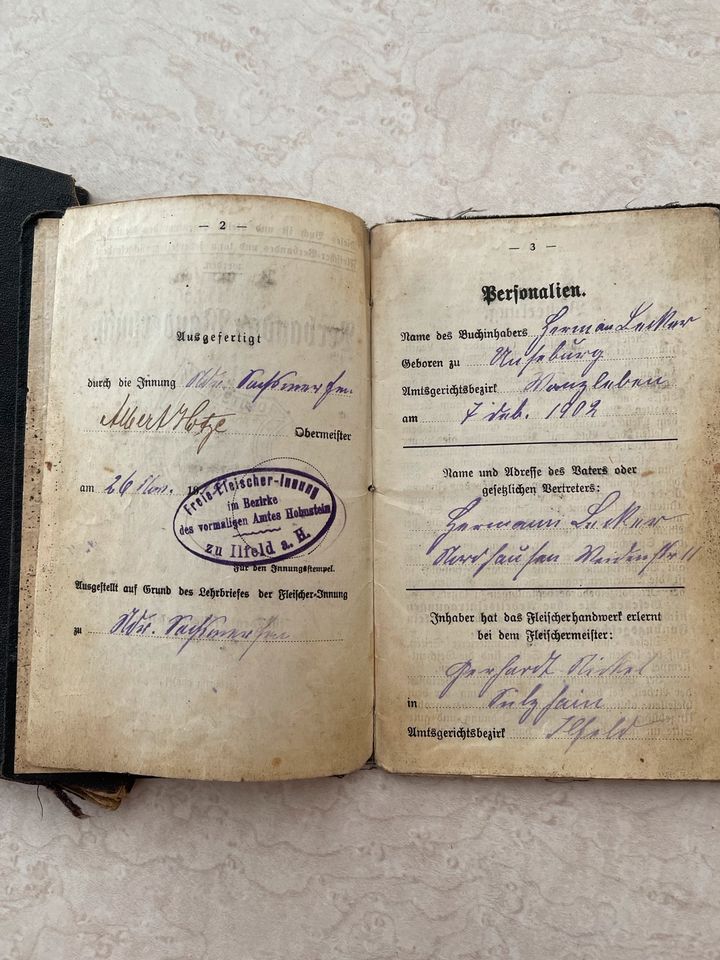 — 2 —
Ausgefertigt
durch die Innung Ndr. Sachswerfen
Albert Hotze Obermeister
am 26 Nov. 19
Freie-Fleischer-Innung
im Bezirke
des vormaligen Amtes Hohnstein
zu Ilfeld a. H.
Für den Innungsstempel.
Ausgestellt auf Grund des Lehrbriefes der Fleischer-Innung
zu Ndr. Sachswerfen
— 3 —
Personalien.
Name des Buchinhabers Herman Lecker
Geboren zu Unseburg
Amtsgerichtsbezirk Wanzleben
am 7 Feb. 1902
Name und Adresse des Vaters oder
gesetzlichen Vertreters:
Hermann Lecker
Nordhausen Weidenstr 11
Inhaber hat das Fleischerhandwerk erlernt
bei dem Fleischermeister:
Gerhardt Nickel
in Sülzhain
Amtsgerichtsbezirk Ilfeld